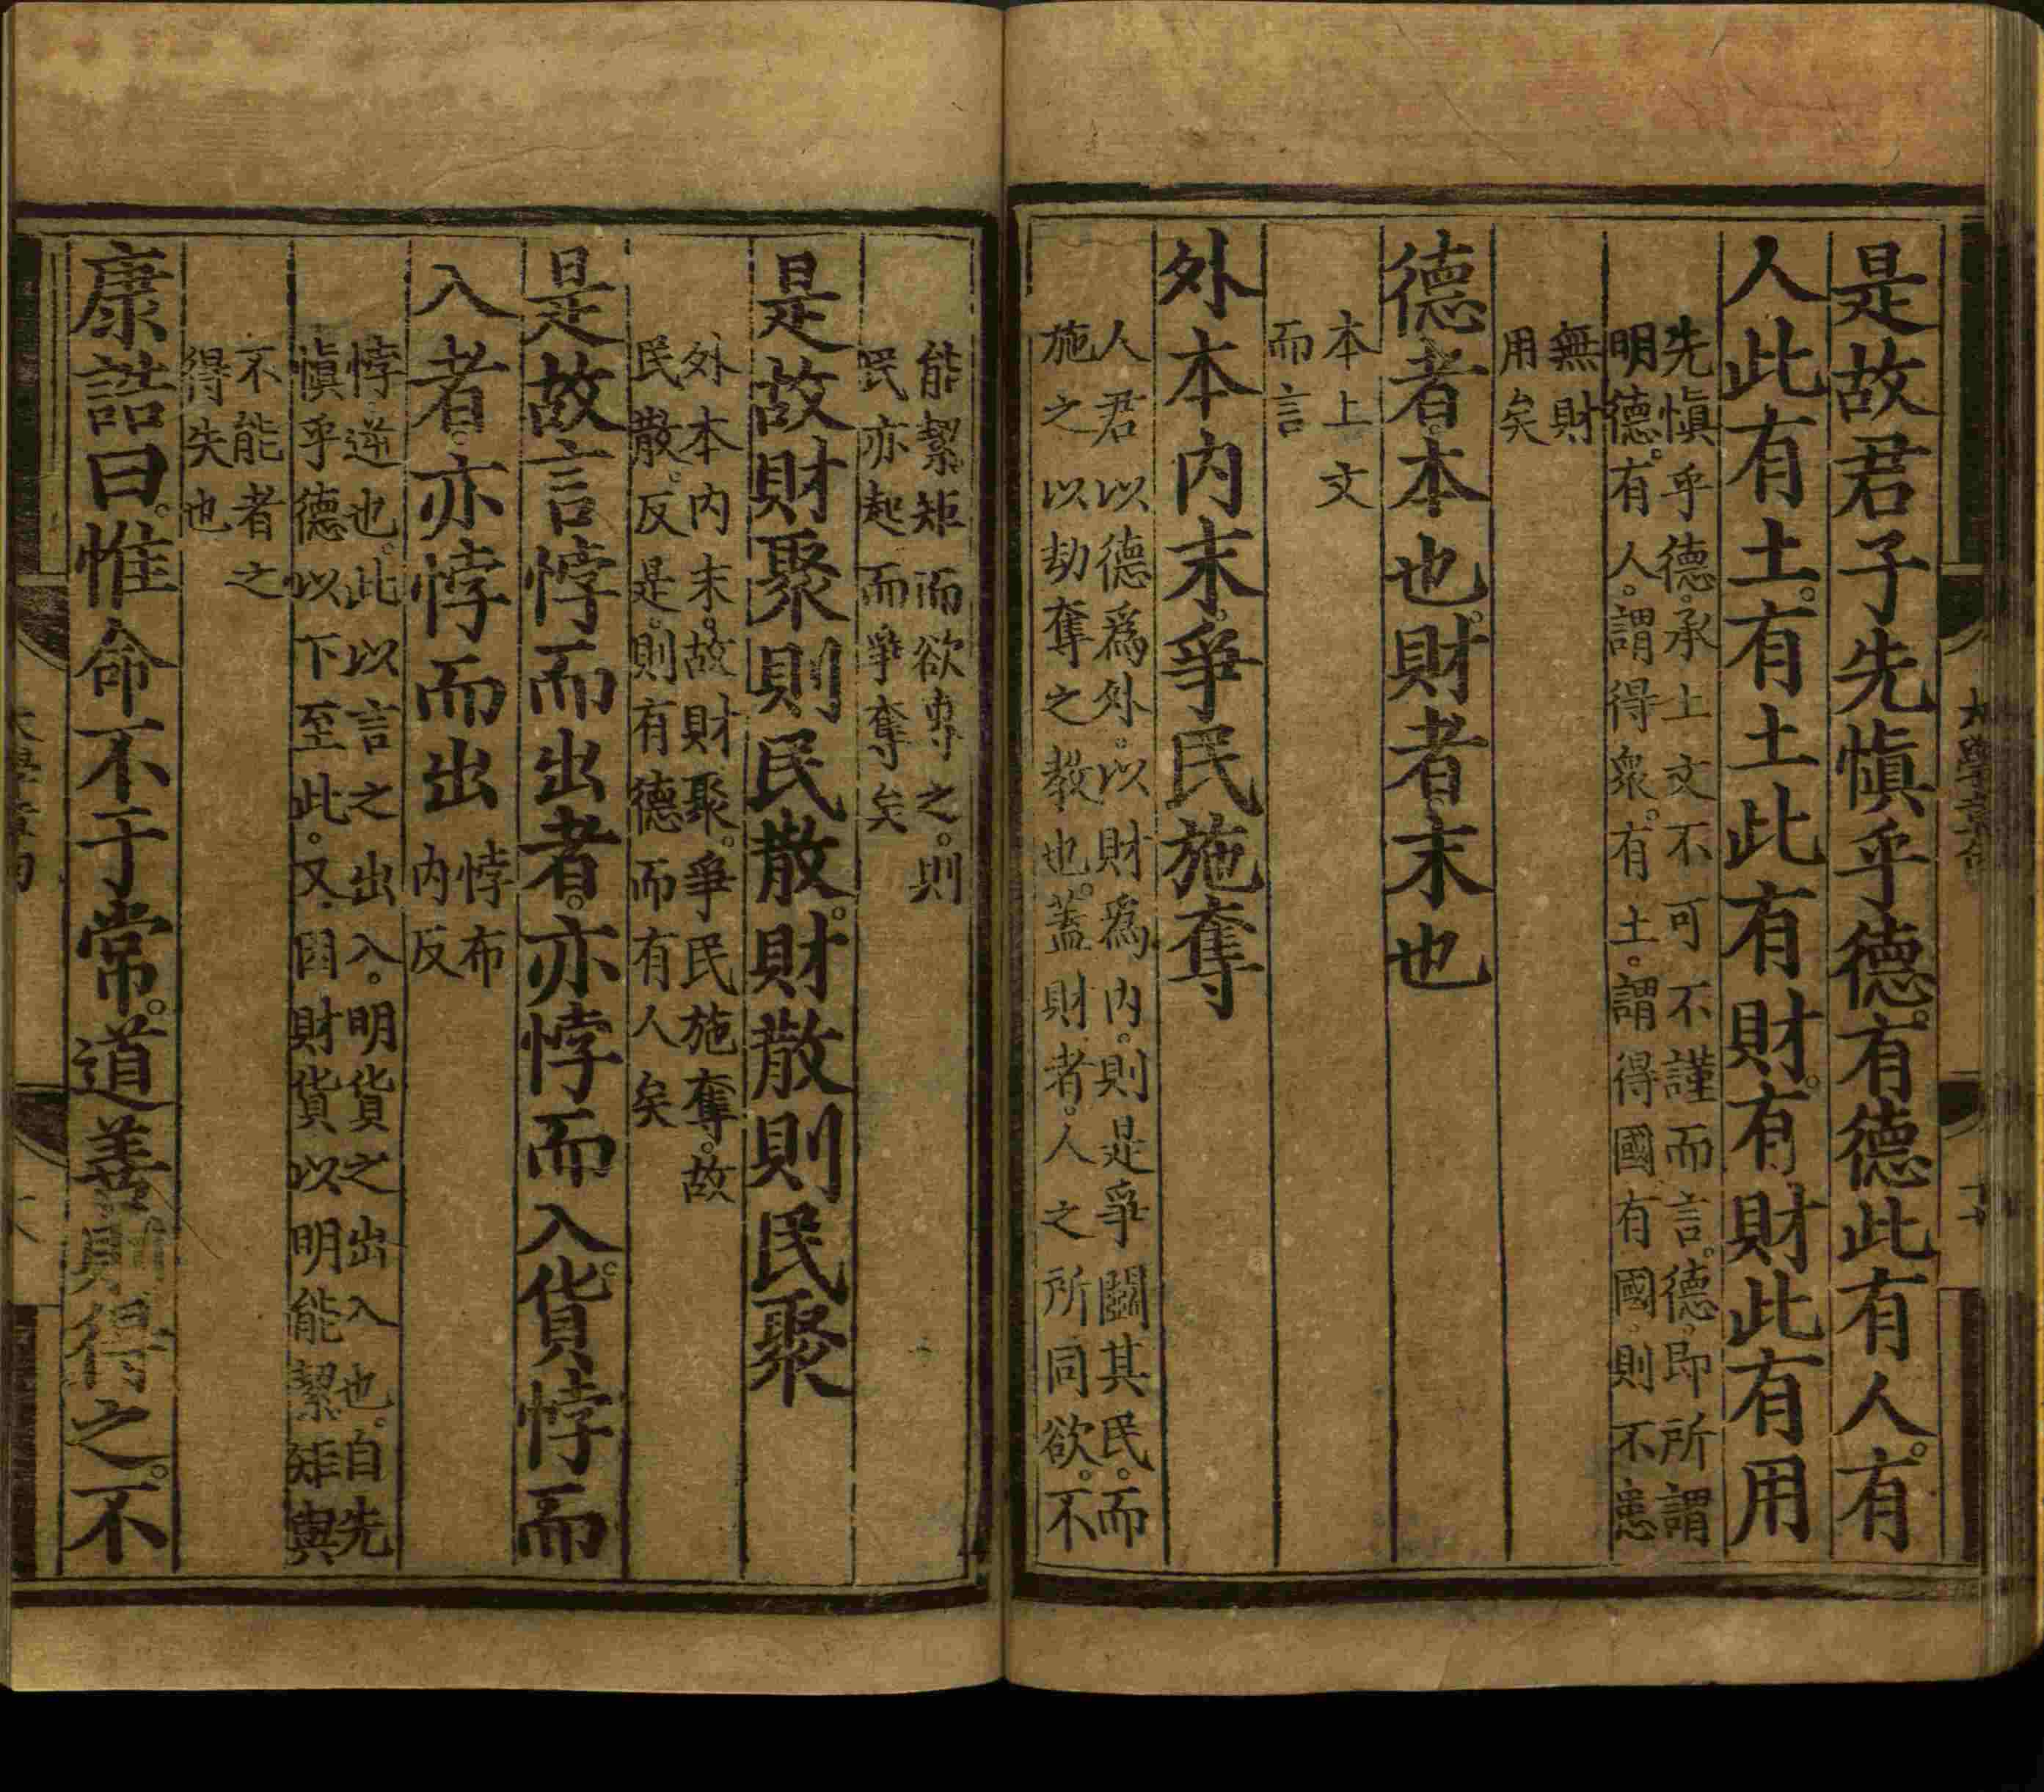 是故君子先愼乎德。有德此有人。有
人此有土。有土此有財。有財此有用
先愼乎德。承上文不可不謹而言。德。卽所謂
明德。有人。謂得衆。有土。謂得國有國。則不患
無財
用矣
德者。本也。財者。末也
本上文
而言
外本內末。爭民施奪
人君以德爲外。以財爲內。則是爭鬬其民。而
施之以劫奪之敎也。蓋財者。人之所同欲。不
能絜矩而欲專之。則
民亦起而爭奪矣
是故財聚則民散。財散則民聚
外本內末。故財聚。爭民施奪。故
民散。反是。則有德而有人矣
是故言悖而出者。亦悖而入。貨悖而
入者。亦悖而出
悖布
內反
悖逆也。此以言之出入。明貨之出入也。自先
愼乎德以下至此。又因財貨以明能絜矩與
不能者之
得失也
康誥曰。惟命不于常。道善則得之。不
大學章句